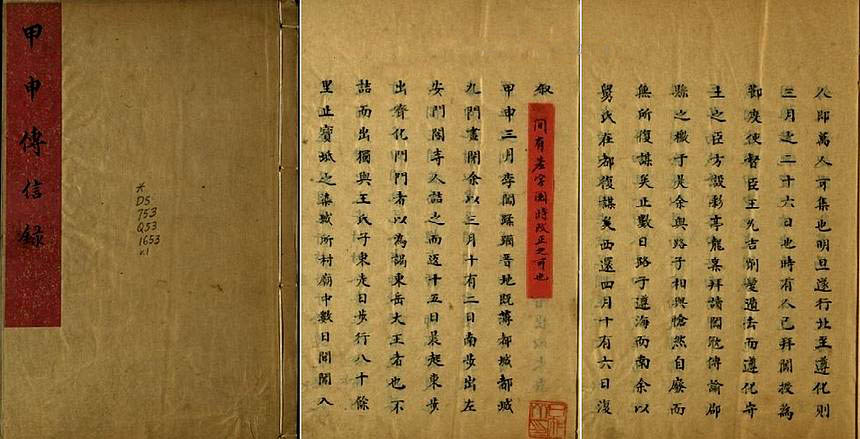 甲申傳信錄
DS
753
Q53
1653
v.1
叙
甲申三月李闖蹂躪晉地既薄都城都城
九門晝閉余以三月十有二日南步出左
安門閽寺人詰之而返十五日晨起東步
出齊化門門者以為謁東岳大王者也不
詰而出獨與王氏子東走日步行八十餘
里止寶坻之城所村廟中數日聞闖入
間有差字時改正之可也
人即萬人可集也明旦遂行北至遵化則
三月之二十六日也時有人已拜闖授為
節度使督臣王允吉削髮遁去而遵化守
土之臣方設彩亭龍案拜讀闖冦傳諭郡
縣之檄于是余與路子相與愴然自廢而
無所復謀矣止數日路子遵海而南余以
舅氏在都復謀矣西還四月十有六日復